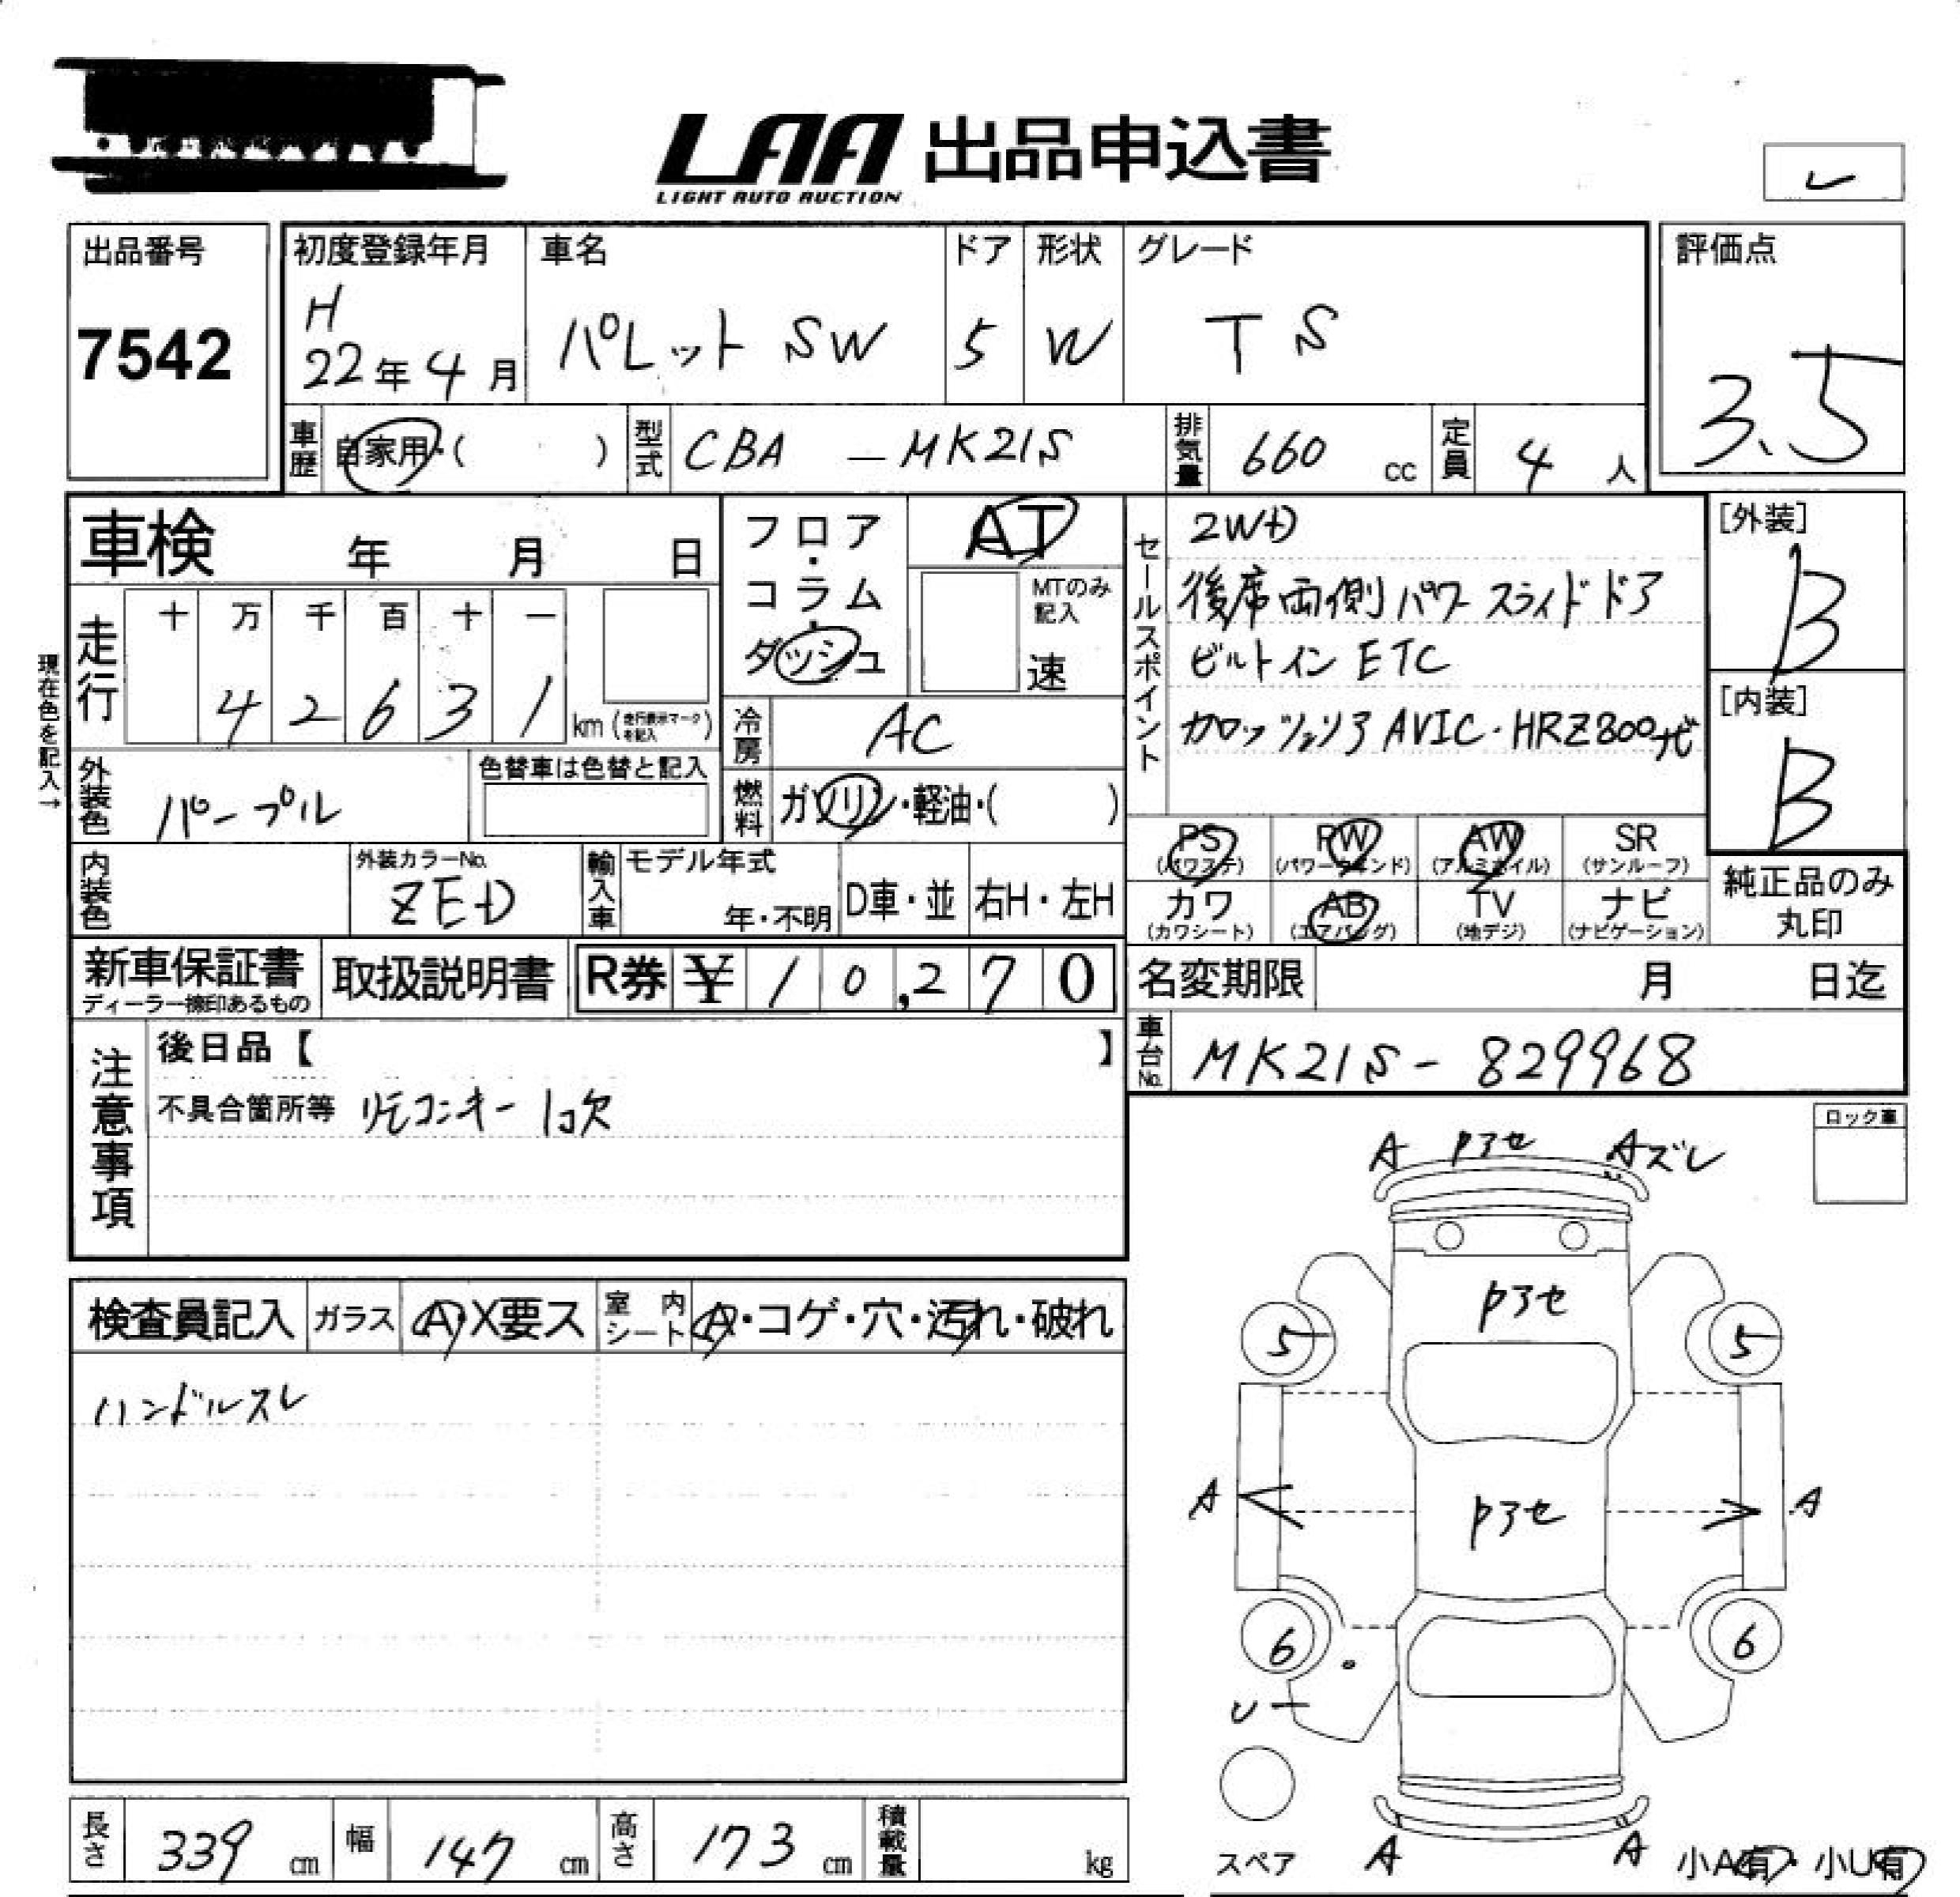 LAA 出品申込書
LIGHT AUTO AUCTION
レ
出品番号
7542
初度登録年月
H
22年 4月
車名
パレット SW
ドア
5
形状
W
グレード
T S
評価点
3.5
車歴 自家用・( )
型式 CBA - MK21S
排気量 660 cc
定員 4 人
車検 年 月 日
フロア・コラム・ダッシュ
AT
MTのみ記入
速
走行
十 万 千 百 十 一
4 2 6 3 1 km (走行表示マークを記入)
現在色を記入→
冷房 AC
外装色 パープル
色替車は色替と記入
燃料 ガソリン・軽油・( )
セールスポイント
2WD
後席両側パワースライドドア
ビルトインETC
カロッツェリア AVIC・HRZ800ナビ
[外装]
B
[内装]
B
PS (パワステ) PW (パワーウインド) AW (アルミホイル) SR (サンルーフ)
カワ (カワシート) AB (エアバッグ) TV (地デジ) ナビ (ナビゲーション)
純正品のみ
丸印
内装色
外装カラーNo.
ZED
輸入車
モデル年式
年・不明
D車・並
右H・左H
新車保証書
ディーラー捺印あるもの
取扱説明書
R券 ¥10,270
名変期限 月 日迄
車台No. MK21S - 829968
注意事項
後日品【 】
不具合箇所等 リモコンキー1コ欠
ロック車
A Pアセ Aズレ
Pアセ
5 5
A Pアセ A
6 6
U
検査員記入 ガラス A・X要ス 室内シート A・コゲ・穴・汚れ・破れ
ハンドルスレ
スペア A A 小A有・小U有
長さ 339 cm 幅 147 cm 高さ 173 cm 積載量 kg